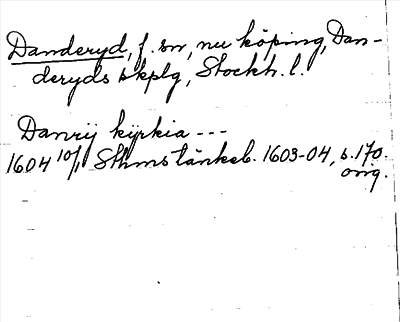 Danderyd, f. sn, nu köping, Dan-
deryds skplg, Stockh. l.
Danrij kyrkia ---
1604 10/1 Sthms tänkeb. 1603-04, s. 170.
orig.